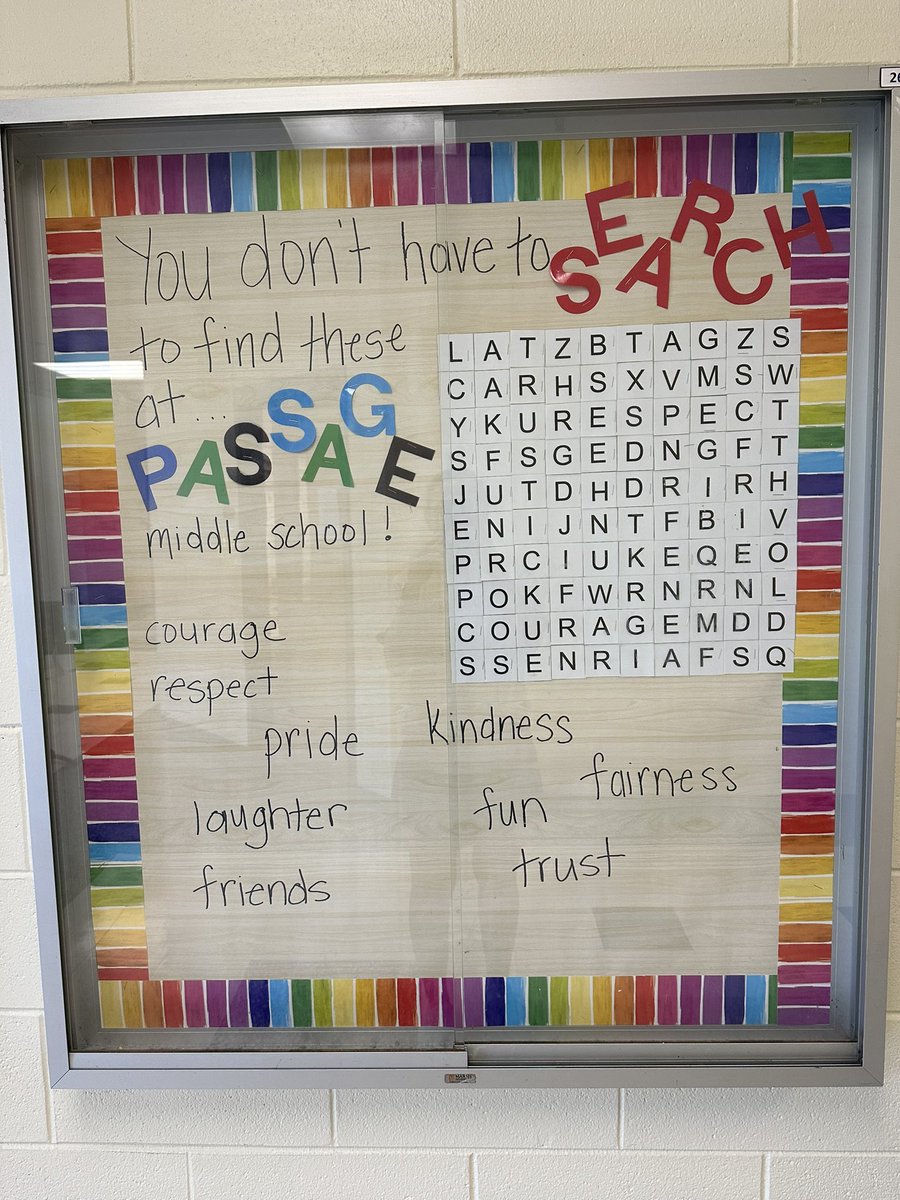 26
You don't have to SEARCH
to find these
at...
PASSAGE
middle school!
L A T Z B T A G Z S
C A R H S X V M S W
Y K U R E S P E C T
S F S G E D N G F T
J U T D H D R I R H
E N I J N T F B I V
P R C I U K E Q E O
P O K F W R N R N L
C O U R A G E M D D
S S E N R I A F S Q
courage
respect
pride
kindness
fairness
laughter
fun
friends
trust